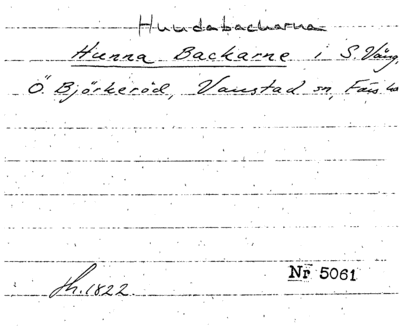 Hundabackarna
Hunna Backarne i S. Vång,
Ö. Björkeröd, Vanstad sn, Färs hd
Sk. 1822.
Nr 5061